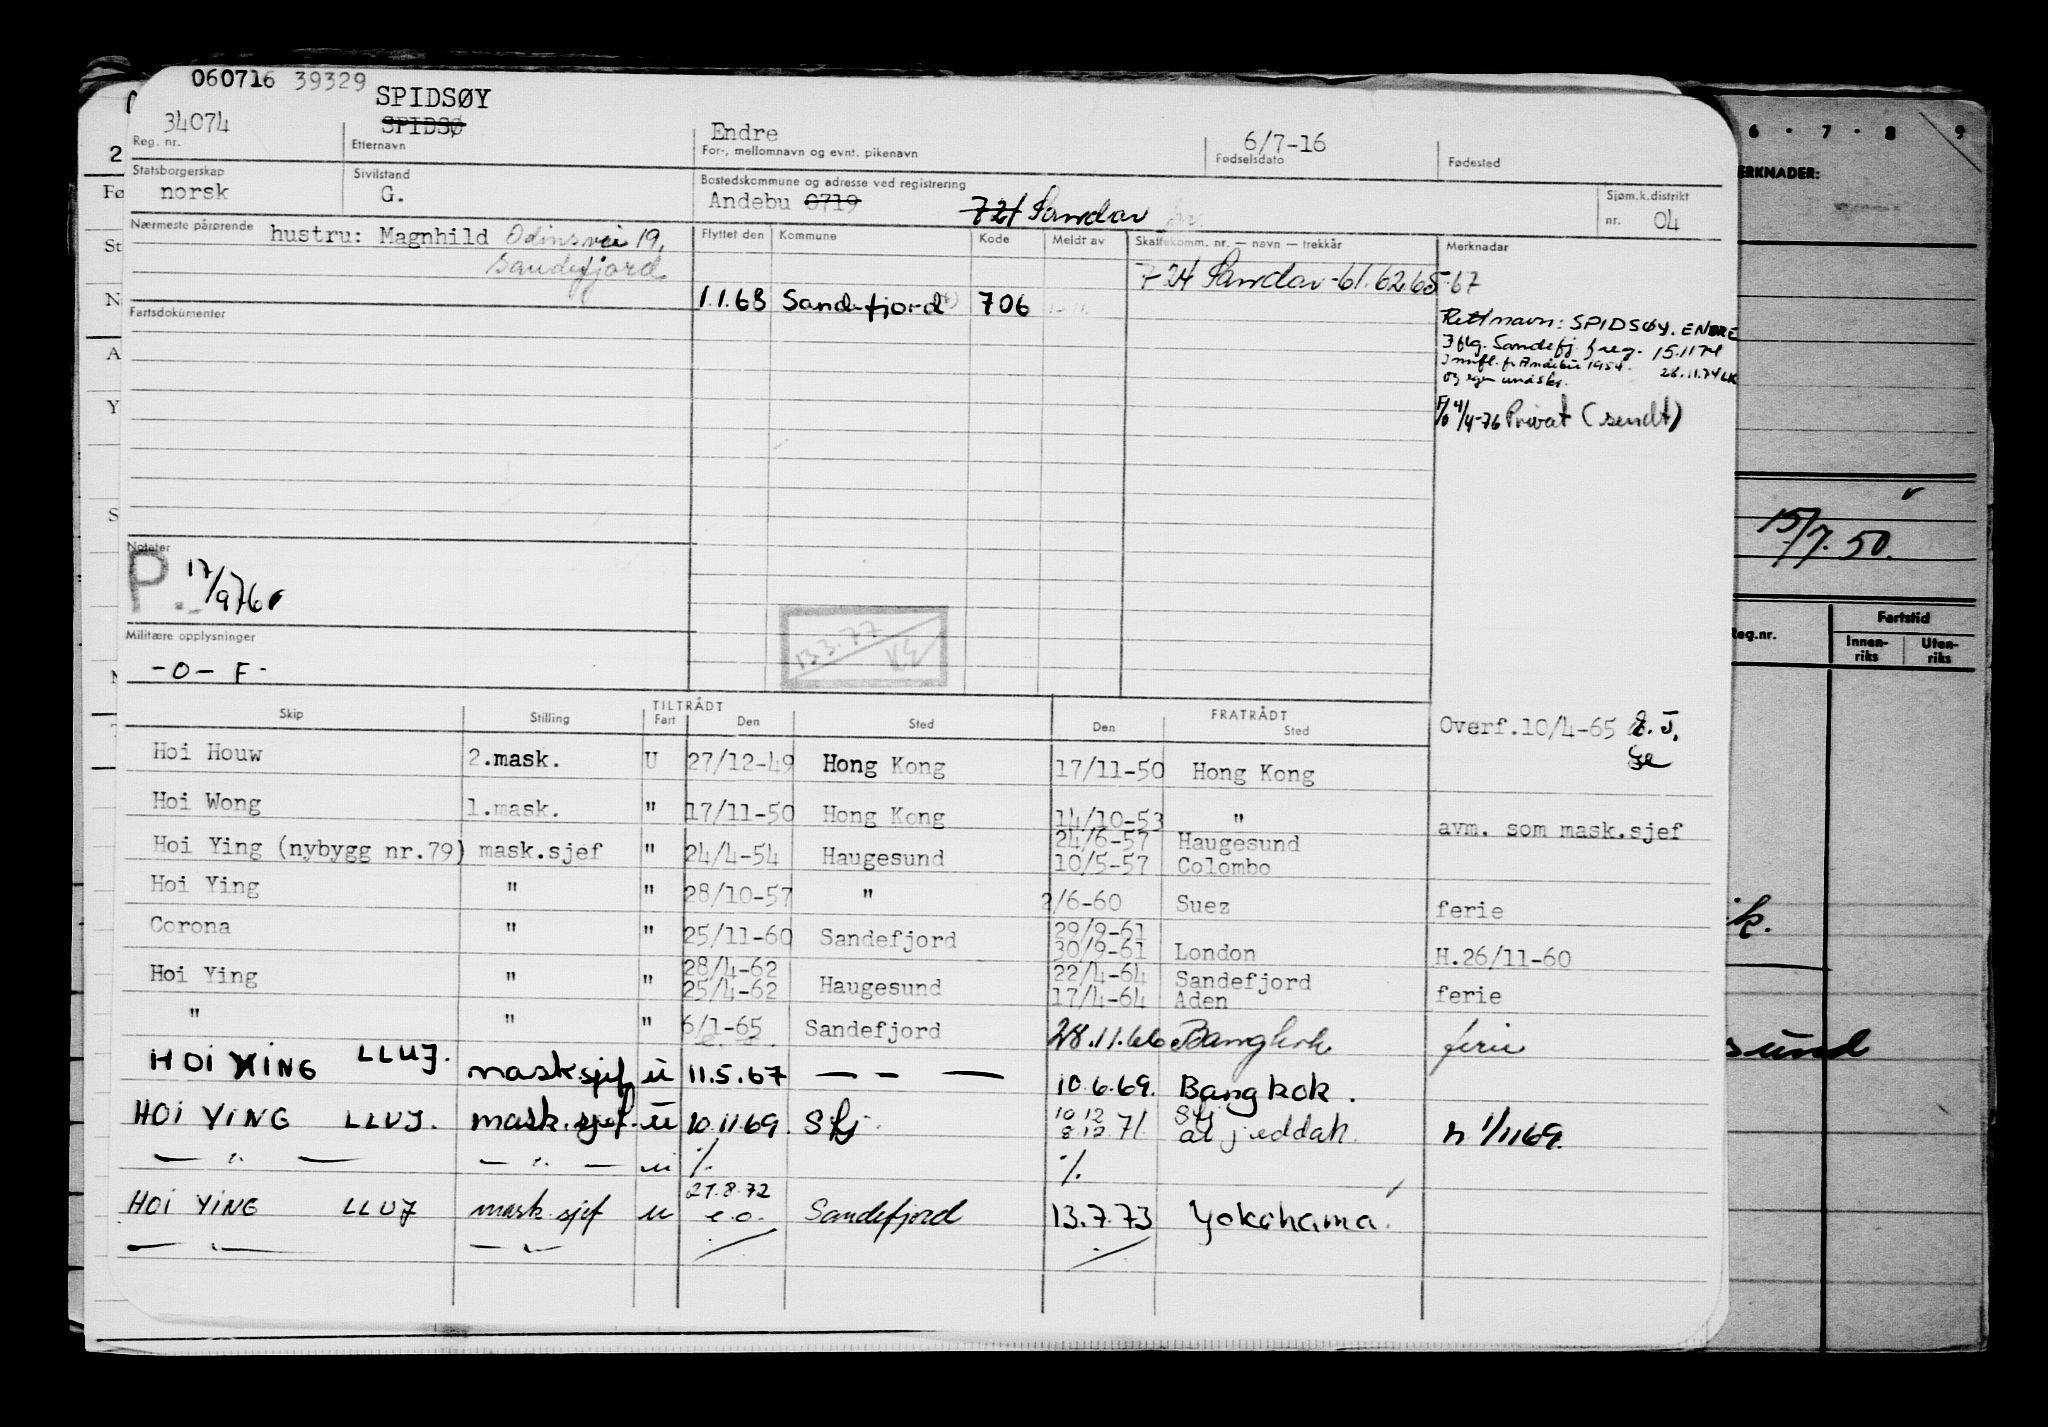 060716 39329
SPIDSØY
34074 SPIDSØ Endre 6/7-16
Reg. nr. Etternavn For-, mellomnavn og evnt. pikenavn Fødselsdato Fødested
Statsborgerskap Sivilstand Bostedskommune og adresse ved registrering Sjøm.k.distrikt
norsk G. Andebu 0719 721 Sandar nr. 04
Nærmeste pårørende hustru: Magnhild Odinsvei 19,
Sandefjord
Flyttet den Kommune Kode Meldt av Skattekomm. nr. — navn — trekkår Merknader
724 Sandar-61.62.65-67
1.1.68 Sandefjord 706
Fartsdokumenter
Rett navn: SPIDSØY. ENDRE
Iflg. Sandefj. f.reg. 15.11.74
Innfl. fr Andebu 1954. 28.11.74 LK
og egen undskr.
4/4-76 Privat (sendt)
Notater
P. 17/9 76
13.3.77
Militære opplysninger
-O- F-
Skip Stilling TILTRÅDT Fart Den Sted FRATRÅDT Den Sted
Overf.10/4-65
Hoi Houw 2.mask. U 27/12-49 Hong Kong 17/11-50 Hong Kong
Hoi Wong 1.mask. " 17/11-50 Hong Kong 14/10-53 " avm. som mask.sjef
24/6-57 Haugesund
Hoi Ying (nybygg nr.79) mask.sjef " 24/4-54 Haugesund 10/5-57 Colombo
Hoi Ying " " 28/10-57 " 2/6-60 Suez ferie
29/9-61
Corona " " 25/11-60 Sandefjord 30/9-61 London H.26/11-60
28/4-62 22/4-64 Sandefjord
Hoi Ying " " 25/4-62 Haugesund 17/4-64 Aden ferie
" " " 6/1-65 Sandefjord 28.11.66 Bangkok ferie
HOI YING LLUJ. masksjef u 11.5.67 — — — 10.6.69. Bangkok.
10 12 Sfj
HOI YING LLUJ. mask.sjef. u 10.11 69. Sfj. 8.12.71. at jeddah. h 1/11 69.
— " — — " — u % %
27.8.72
HOI YING LLUJ mask sjef u e.o. Sandefjord 13.7.73 Yokohama.
— " — — " —
2
Fø
St
N
A
Y
S
6 · 7 · 8 9
ERKNADER:
15/7. 50.
Reg.nr. Fartstid
Innen-
riks Uten-
riks
ik.
sund